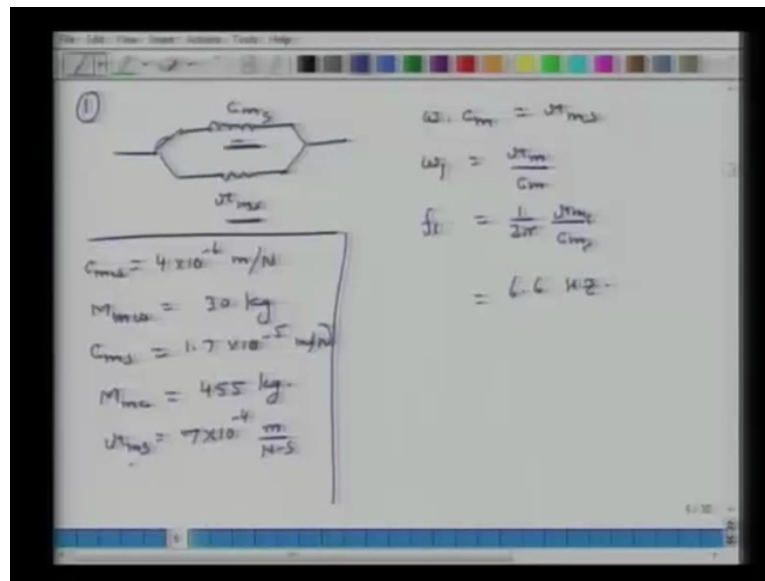 File Edit View Insert Actions Tools Help
①
Cms
rms
Cms = 4 × 10⁻⁶ m/N
Mmw = 30 kg
Cms = 1.7 × 10⁻⁵ m/N
Mmc = 455 kg.
rms = 7×10⁻⁴ m/N-S
ω. Cm = rms
ω₁ = rm/Cm
f₁ = 1/2π rms/Cms
= 6.6 HZ.